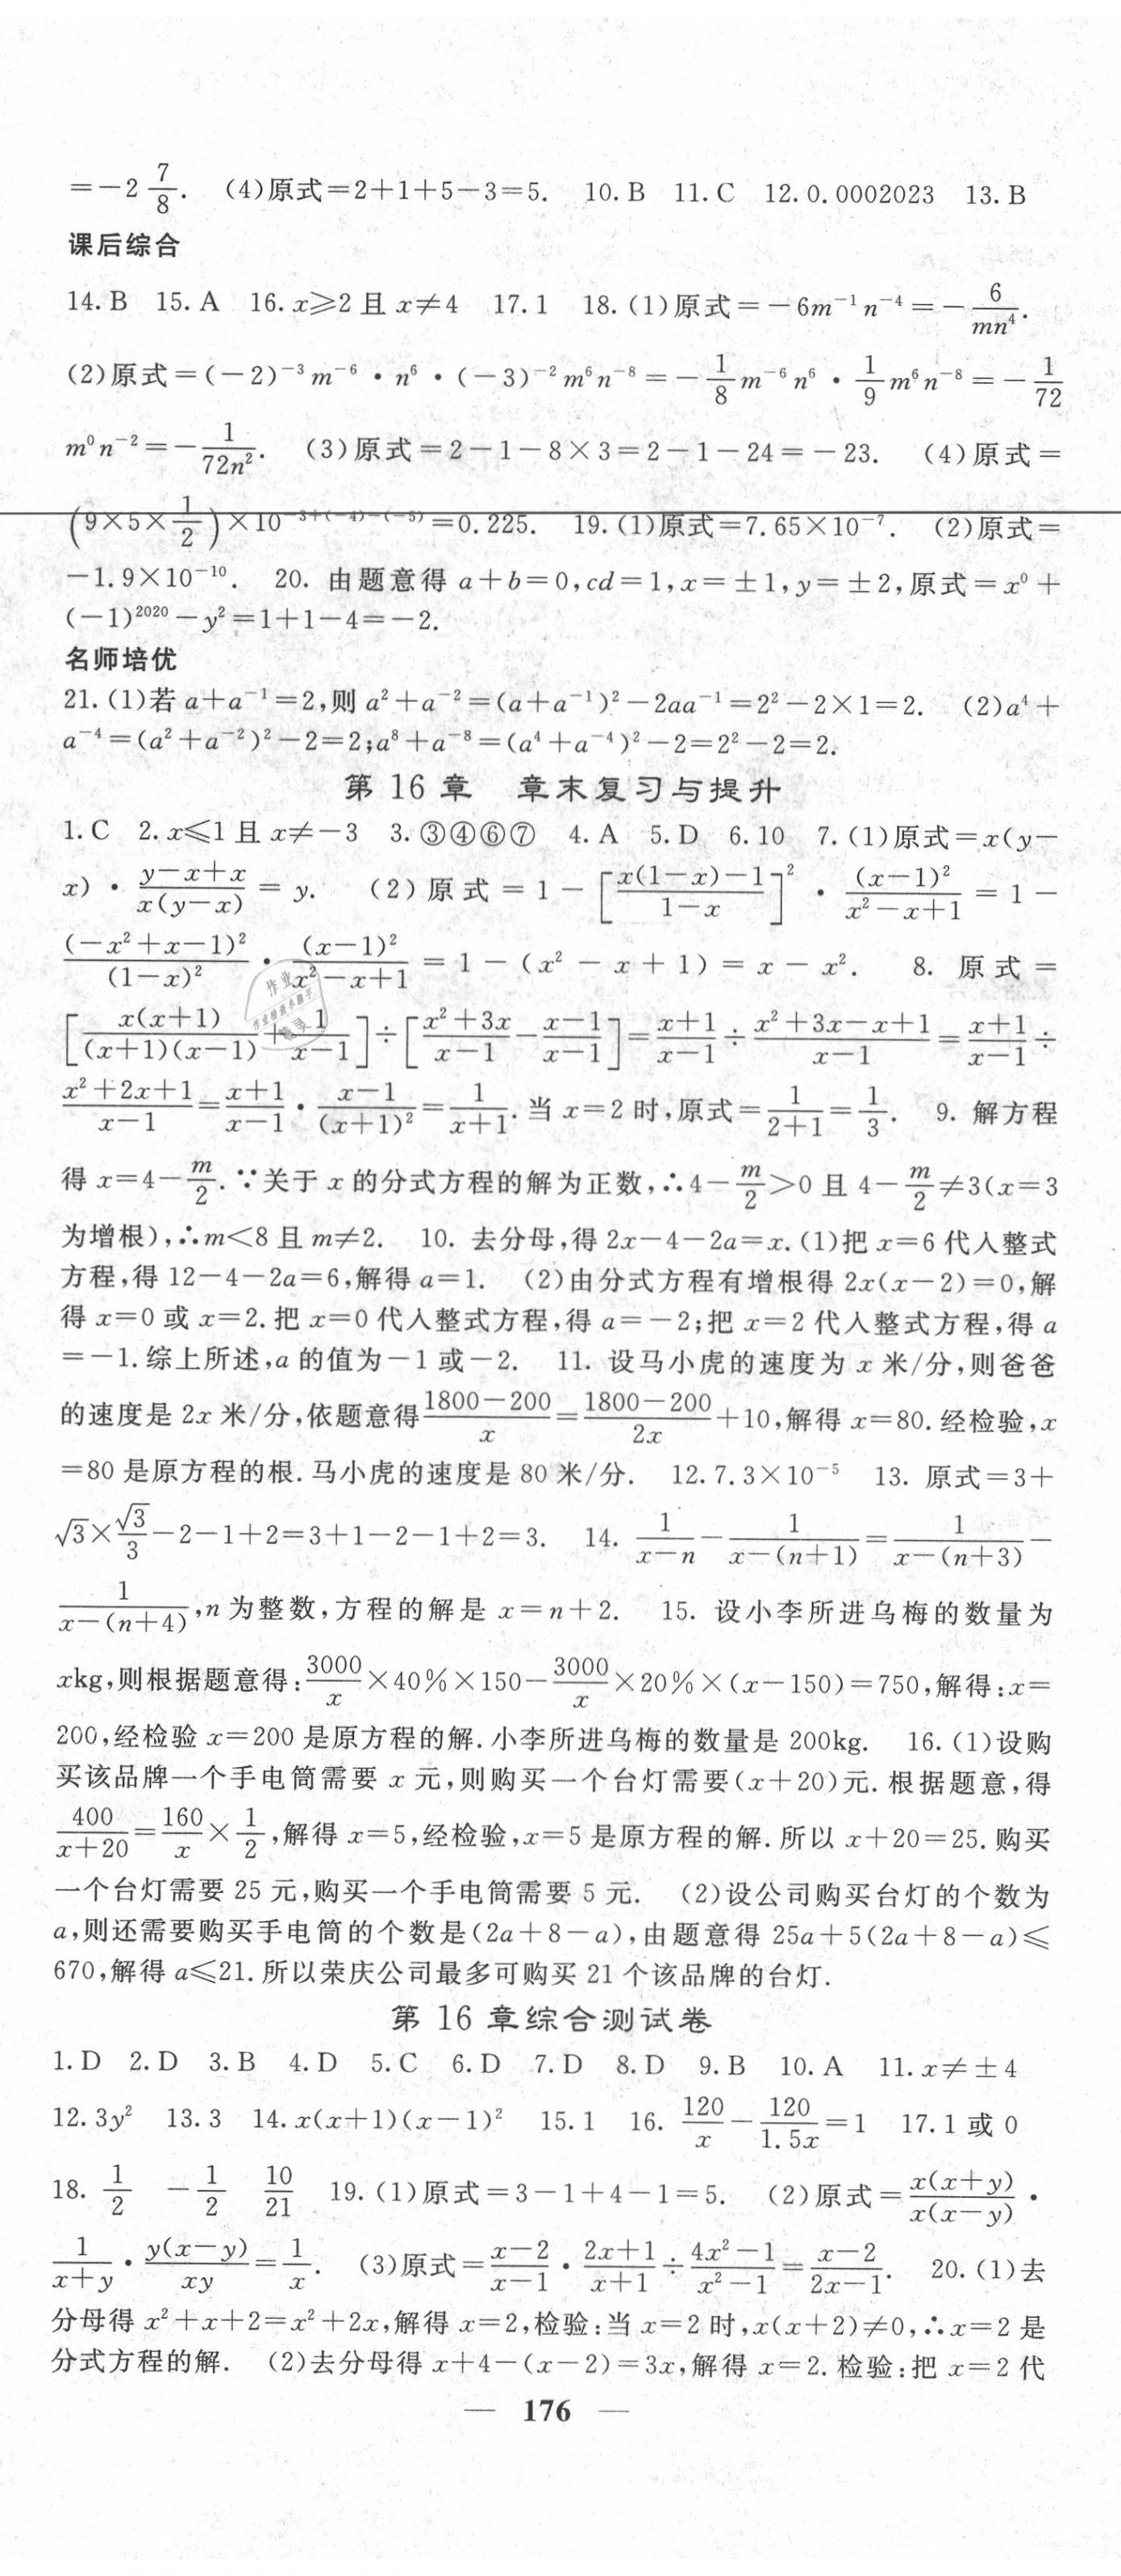 =-2 7/8. (4)原式=2+1+5-3=5. 10. B 11. C 12. 0.0002023 13. B
课后综合
14. B 15. A 16. x⩾2 且 x≠4 17. 1 18. (1)原式=-6m⁻¹n⁻⁴=-6/(mn⁴).
(2)原式=(-2)⁻³m⁻⁶·n⁶·(-3)⁻²m⁶n⁻⁸=-1/8 m⁻⁶n⁶·1/9 m⁶n⁻⁸=-1/72
m⁰n⁻²=-1/(72n²). (3)原式=2-1-8×3=2-1-24=-23. (4)原式=
(9×5×1/2)×10^(-3+(-4)-(-5))=0.225. 19. (1)原式=7.65×10⁻⁷. (2)原式=
-1.9×10⁻¹⁰. 20. 由题意得 a+b=0,cd=1,x=±1,y=±2,原式=x⁰+
(-1)²⁰²⁰-y²=1+1-4=-2.
名师培优
21. (1)若 a+a⁻¹=2,则 a²+a⁻²=(a+a⁻¹)²-2aa⁻¹=2²-2×1=2. (2)a⁴+
a⁻⁴=(a²+a⁻²)²-2=2;a⁸+a⁻⁸=(a⁴+a⁻⁴)²-2=2²-2=2.
第 16 章 章末复习与提升
1. C 2. x⩽1 且 x≠-3 3. ③④⑥⑦ 4. A 5. D 6. 10 7. (1)原式=x(y-
x)·(y-x+x)/(x(y-x))=y. (2)原式=1-[(x(1-x)-1)/(1-x)]²·(x-1)²/(x²-x+1)=1-
(-x²+x-1)²/(1-x)²·(x-1)²/(x²-x+1)=1-(x²-x+1)=x-x². 8. 原式=
[x(x+1)/((x+1)(x-1))+1/(x-1)]÷[(x²+3x)/(x-1)-(x-1)/(x-1)]=(x+1)/(x-1)÷(x²+3x-x+1)/(x-1)=(x+1)/(x-1)÷
(x²+2x+1)/(x-1)=(x+1)/(x-1)·(x-1)/(x+1)²=1/(x+1). 当 x=2 时,原式=1/(2+1)=1/3. 9. 解方程
得 x=4-m/2. ∵关于 x 的分式方程的解为正数,∴4-m/2>0 且 4-m/2≠3(x=3
为增根),∴m<8 且 m≠2. 10. 去分母,得 2x-4-2a=x. (1)把 x=6 代入整式
方程,得 12-4-2a=6,解得 a=1. (2)由分式方程有增根得 2x(x-2)=0,解
得 x=0 或 x=2. 把 x=0 代入整式方程,得 a=-2;把 x=2 代入整式方程,得 a
=-1. 综上所述,a 的值为-1 或-2. 11. 设马小虎的速度为 x 米/分,则爸爸
的速度是 2x 米/分,依题意得(1800-200)/x=(1800-200)/(2x)+10,解得 x=80. 经检验,x
=80 是原方程的根. 马小虎的速度是 80 米/分. 12. 7.3×10⁻⁵ 13. 原式=3+
√3×√3/3-2-1+2=3+1-2-1+2=3. 14. 1/(x-n)-1/(x-(n+1))=1/(x-(n+3))-
1/(x-(n+4)),n 为整数,方程的解是 x=n+2. 15. 设小李所进乌梅的数量为
xkg,则根据题意得:3000/x×40%×150-3000/x×20%×(x-150)=750,解得:x=
200,经检验 x=200 是原方程的解. 小李所进乌梅的数量是 200kg. 16. (1)设购
买该品牌一个手电筒需要 x 元,则购买一个台灯需要(x+20)元. 根据题意,得
400/(x+20)=160/x×1/2,解得 x=5,经检验,x=5 是原方程的解. 所以 x+20=25. 购买
一个台灯需要 25 元,购买一个手电筒需要 5 元. (2)设公司购买台灯的个数为
a,则还需要购买手电筒的个数是(2a+8-a),由题意得 25a+5(2a+8-a)⩽
670,解得 a⩽21. 所以荣庆公司最多可购买 21 个该品牌的台灯.
第 16 章综合测试卷
1. D 2. D 3. B 4. D 5. C 6. D 7. D 8. D 9. B 10. A 11. x≠±4
12. 3y² 13. 3 14. x(x+1)(x-1)² 15. 1 16. 120/x-120/(1.5x)=1 17. 1 或 0
18. 1/2 -1/2 10/21 19. (1)原式=3-1+4-1=5. (2)原式=x(x+y)/(x(x-y))·
1/(x+y)·y(x-y)/(xy)=1/x. (3)原式=(x-2)/(x-1)·(2x+1)/(x+1)÷(4x²-1)/(x²-1)=(x-2)/(2x-1). 20. (1)去
分母得 x²+x+2=x²+2x,解得 x=2,检验:当 x=2 时,x(x+2)≠0,∴x=2 是
分式方程的解. (2)去分母得 x+4-(x-2)=3x,解得 x=2. 检验:把 x=2 代
— 176 —